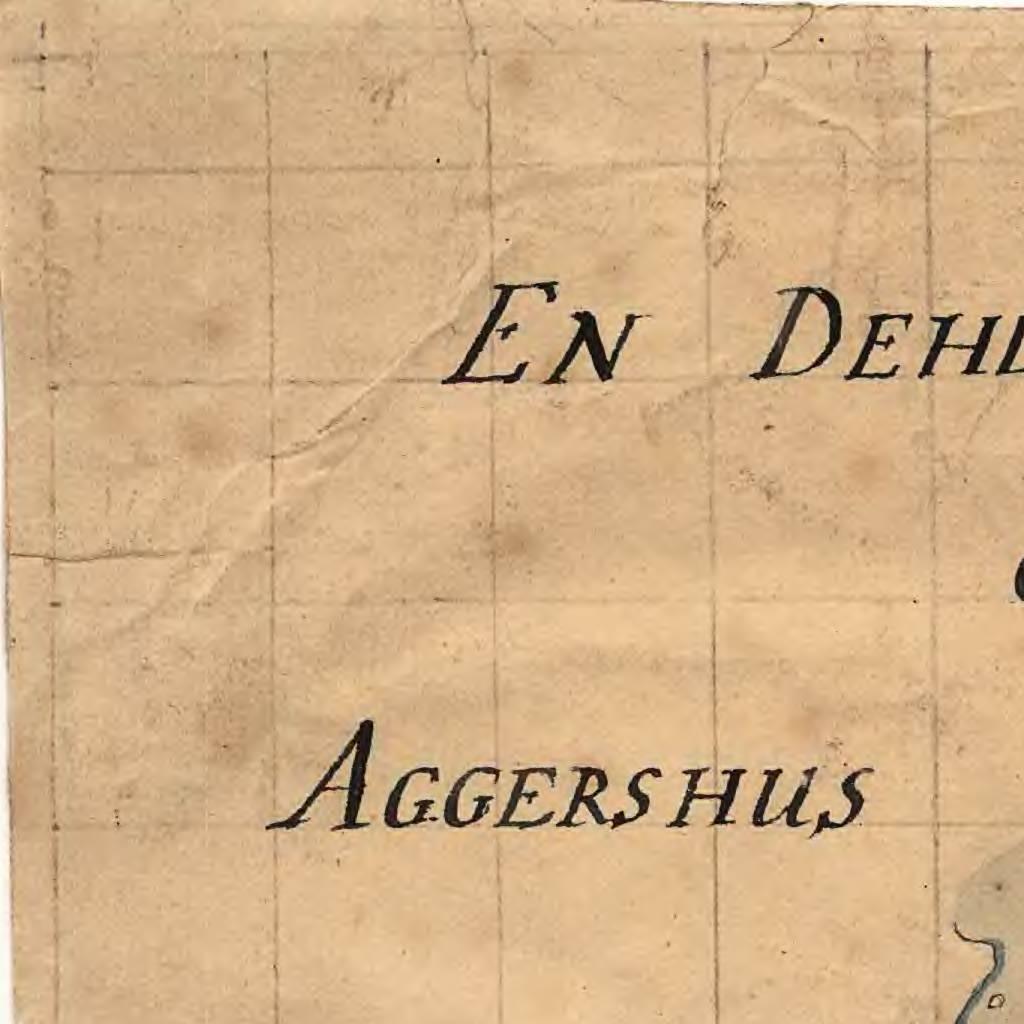 EN DEHL
AGGERSHUS